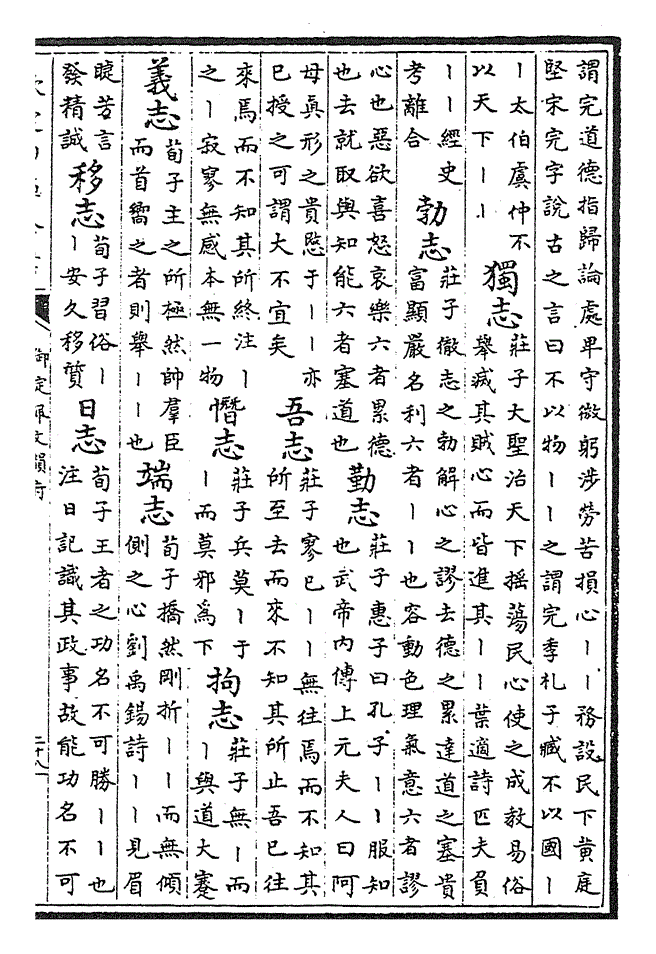 謂完道德指歸論處卑守微躬涉勞苦損心丨丨務設民下黄庭
堅宋完字說古之言曰不以物丨丨之謂完季札子臧不以國丨
丨太伯虞仲不
以天下丨丨
獨志
莊子大聖治天下揺蕩民心使之成教易俗
舉滅其賊心而皆進其丨丨葉適詩匹夫負
丨丨經史
考離合
勃志
莊子徹志之勃解心之謬去德之累達道之塞貴
富顯嚴名利六者丨丨也容動色理氣意六者謬
心也惡欲喜怒哀樂六者累德
也去就取與知能六者塞道也
勤志
莊子惠子曰孔子丨丨服知
也武帝内傳上元夫人曰阿
母真形之貴愍于丨丨亦
已授之可謂大不宜矣
吾志
莊子寥已丨丨無往焉而不知其
所至去而來不知其所止吾已往
來焉而不知其所終注丨
之丨寂寥無感本無一物
憯志
莊子兵莫丨于
丨而莫邪為下
拘志
莊子無丨而
丨與道大蹇
義志
荀子主之所極然帥羣臣
而首嚮之者則舉丨丨也
端志
荀子橋然剛折丨丨而無傾
側之心劉禹錫詩丨丨見眉
睫芳言
發精誠
移志
荀子習俗丨
丨安久移質
日志
荀子王者之功名不可勝丨丨也
注日記識其政事故能功名不可
御定佩文韻府